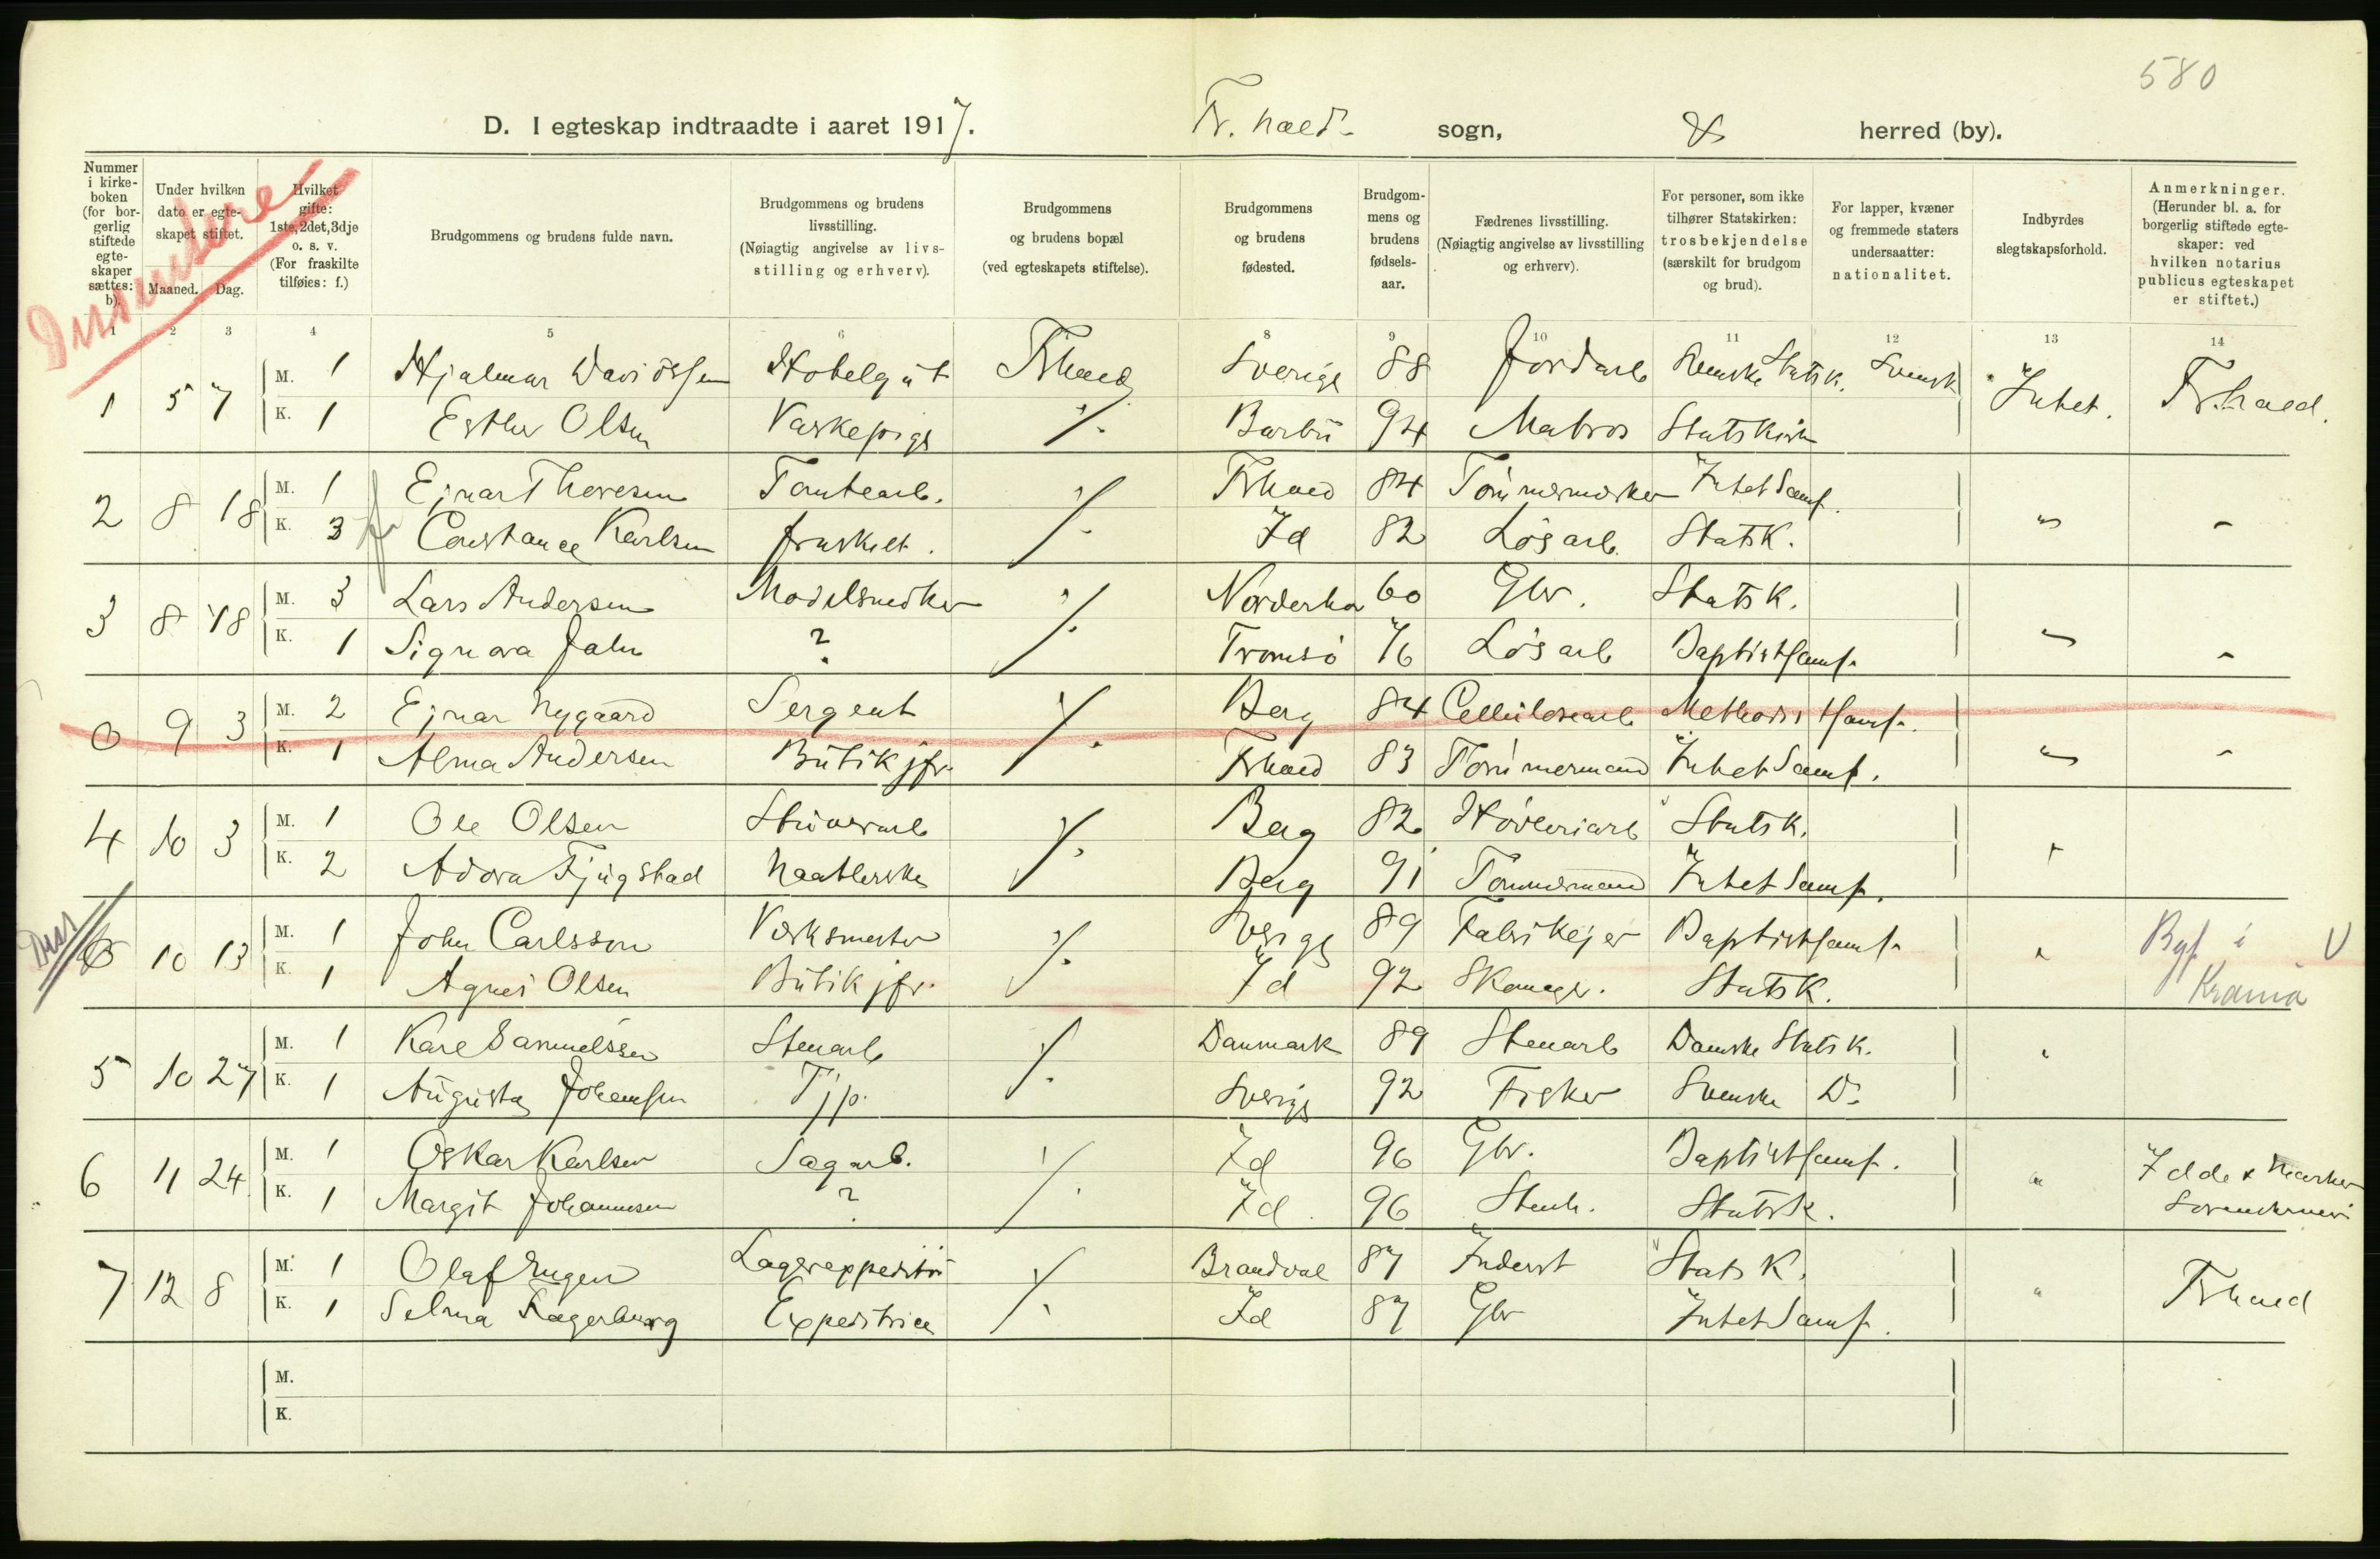 580
D. I egteskap indtraadte i aaret 1917. Fr.hald sogn, & herred (by).
Dissentere
Nummer i kirke-boken (for bor-gerlig stiftede egte-skaper sættes: b).
Under hvilken dato er egte-skapet stiftet.
Maaned. Dag.
Hvilket gifte: 1ste, 2det, 3dje o. s. v. (For fraskilte tilføies: f.)
Brudgommens og brudens fulde navn.
Brudgommens og brudens livsstilling. (Nøiagtig angivelse av livs-stilling og erhverv).
Brudgommens og brudens bopæl (ved egteskapets stiftelse).
Brudgommens og brudens fødested.
Brudgom-mens og brudens fødsels-aar.
Fædrenes livsstilling. (Nøiagtig angivelse av livsstilling og erhverv).
For personer, som ikke tilhører Statskirken: trosbekjendelse (særskilt for brudgom og brud).
For lapper, kvæner og fremmede staters undersaatter: nationalitet.
Indbyrdes slegtskapsforhold.
Anmerkninger. (Herunder bl. a. for borgerlig stiftede egte-skaper: ved hvilken notarius publicus egteskapet er stiftet.)
1 2 3 4 5 6 8 9 10 11 12 13 14
1 5 7 M. 1 Hjalmar Davidssen Hotelgut Frhald Sverige 88 Jordarb Svenske Statsk. Svensk Intet. Fr.hald.
K. 1 Esther Olsen Vaskepige ./. Barbu 94 Matros Statskirk
2 8 18 M. 1 Ejnar Thoresen Tomtearb. ./. Frhald 84 Tømmermerker Intet Samf. " "
K. 3 f Constance Karlsen fraskilt. Id 82 Løsarb. Statsk.
3 8 18 M. 3 Lars Andersen Modelsnedker ./. Norderho 60 Gbr. Statsk. " "
K. 1 Signora Jahn ? Tromsø 76 Løsarb Baptistsamf.
0 9 3 M. 2 Ejnar Nygaard Sergent ./. Berg 84 Cellulosearb Methodistsamf. " "
K. 1 Alma Andersen Butikjfr. Frhald 83 Tømmermand Intet Samf.
4 10 3 M. 1 Ole Olsen Stuverarb ./. Berg 82 Høvleriarb Statsk. "
K. 2 Adora Fjugstad Naatlerske Berg 91 Tømmermand Intet Samf.
Diss
10 13 M. 1 John Carlsson Verksmester ./. Sverige 89 Fabrikejer Baptistsamf. " Byf. i V
K. 1 Agnes Olsen Butikjfr. Id 92 Skomager. Statsk. Krania
5 10 27 M. 1 Karl Samuelsen Stenarb ./. Danmark 89 Stenarb Danske Statsk. "
K. 1 Augusta Johansen Tjp. Sverige 92 Fisker Svenske Do
6 11 24 M. 1 Oskar Karlsen Sagarb. ./. Id 96 Gbr. Baptistsamf. " Idde & Marker
K. 1 Margit Johannesen ? Id 96 Stenh. Statsk. Sorenskriveri
7 12 8 M. 1 Olaf Engen Lagerexpeditør ./. Brandval 87 Inderst Statsk. " Frhald
K. 1 Selma Fagerberg Expeditrice Id 87 Gbr Intet Samf.
M.
K.